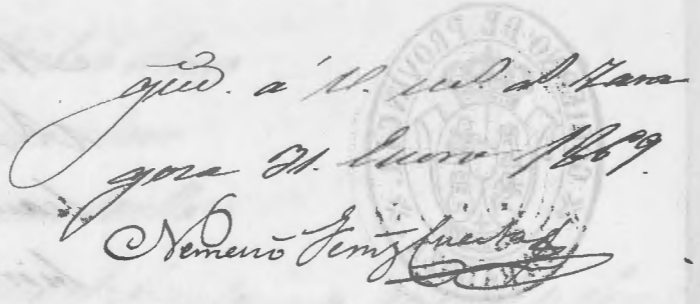 gue. á V. ms. as. Zara
goza 31. Enero 1869.
Nemesio Fernz Cuesta